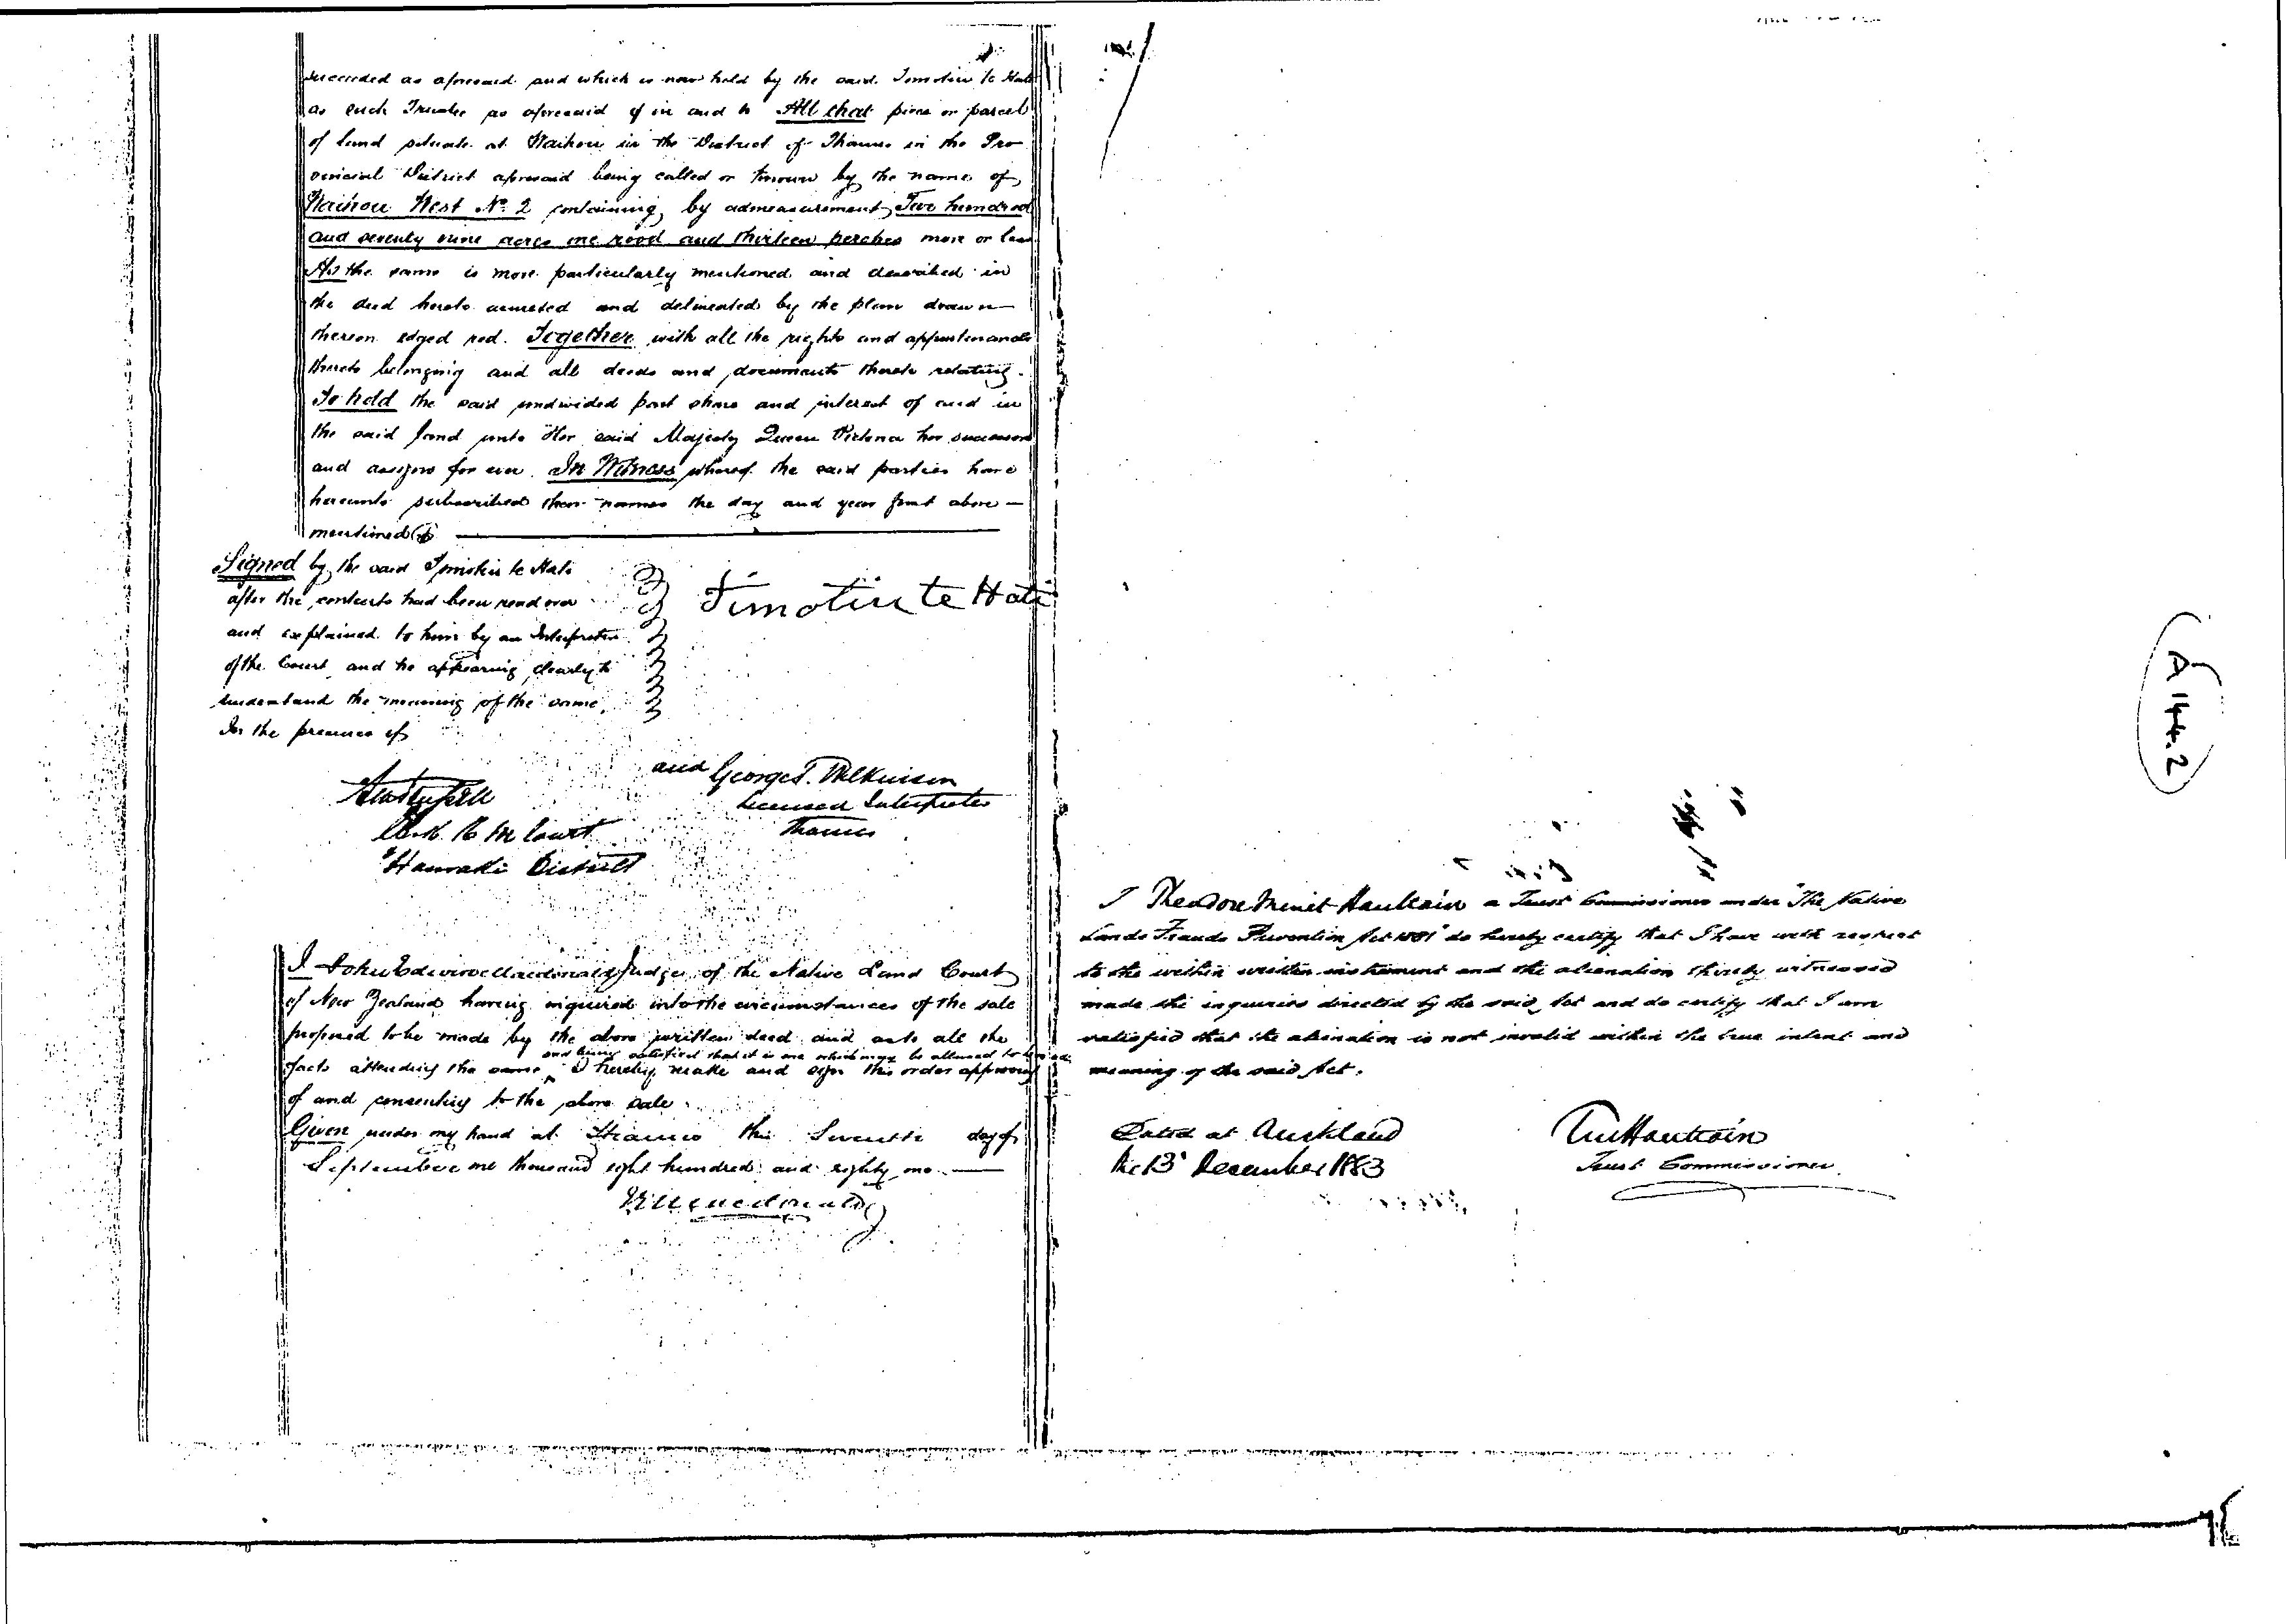 succeeded as aforesaid and which is now held by the said Timotiu te Hati
as such Trustee as aforesaid of in and to All that piece or parcel
of land situate at Waihou in the District of Thames in the Pro
vincial District aforesaid being called or known by the name of
Waihou West No. 2 containing by admeasurement Two hundred
and seventy nine acres one rood and thirteen perches more or less
As the same is more particularly mentioned and described in
the deed hereto annexed and delineated by the plan drawn
thereon edged red. Together with all the rights and appurtenances
thereto belonging and all deeds and documents thereto relating.
To hold the said undivided part share and interest of and in
the said land unto Her said Majesty Queen Victoria her successors
and assigns for ever. In Witness whereof the said parties have
hereunto subscribed their names the day and year first above
mentioned
Signed by the said Timotiu te Hati
after the contents had been read over
and explained to him by an Interpreter
of the Court and he appearing clearly to
understand the meaning of the same,
In the presence of
Timotiu te Hati
Clerk R M Court
Hauraki District
and George T. Wilkinson
Licensed Interpreter
Thames
I John Edwin Macdonald Judge of the Native Land Court
of New Zealand having inquired into the circumstances of the sale
proposed to be made by the above written deed and as to all the
and being satisfied that it is one which may be allowed to be made
facts attending the same I hereby make and sign this order approving
of and consenting to the above sale.
Given under my hand at Thames this Seventh day of
September one thousand eight hundred and eighty one
Macdonald
I Theodore Minet Haultain a Trust Commissioner under "The Native
Lands Frauds Prevention Act 1881" do hereby certify that I have with respect
to the within written instrument and the alienation thereby witnessed
made the inquiries directed by the said Act and do certify that I am
satisfied that the alienation is not invalid within the true intent and
meaning of the said Act.
Dated at Auckland
the 13 December 1883
TM Haultain
Trust Commissioner
A 144.2